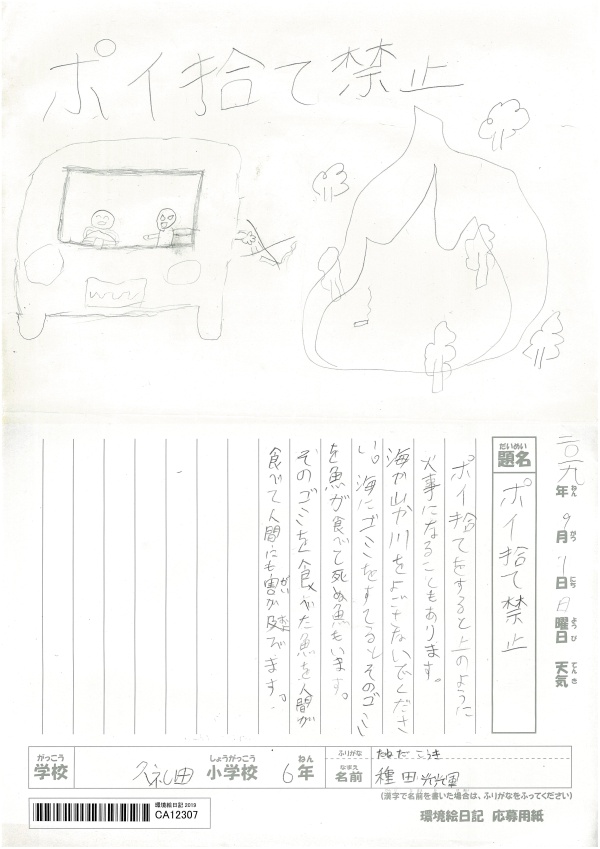 ポイ捨て禁止
二〇一九年ねん 9月がつ 1日にち 日曜日ようび 天気てんき
題名だいめい ポイ捨て禁止
ポイ捨てをすると上のように
火事になることもあります。
海か山か川をよごさないでくださ
い。海にゴミをすてるとそのゴミ
を魚が食べて死ぬ魚もいます。
そのゴミを食べた魚を人間が
食べて人間にも害がいが及びます。
学校がっこう 久礼田 小学校しょうがっこう 6年ねん
ふりがな たねだ こうき
名前なまえ 種田
(漢字で名前を書いた場合は、ふりがなをふってください)
環境絵日記 2019
CA12307
環境絵日記 応募用紙